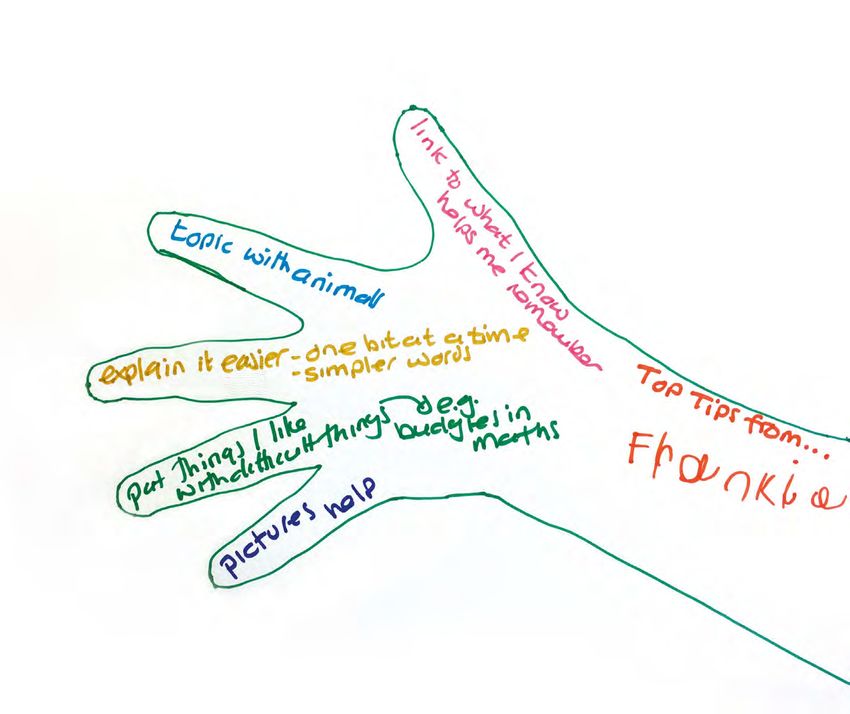 link to what I know
helps me remember
topic with animals
explain it easier - one bit at a time
- simpler words
put things I like
with difficult things → e.g.
budgies in
maths
pictures help
Top Tips from...
Frankie